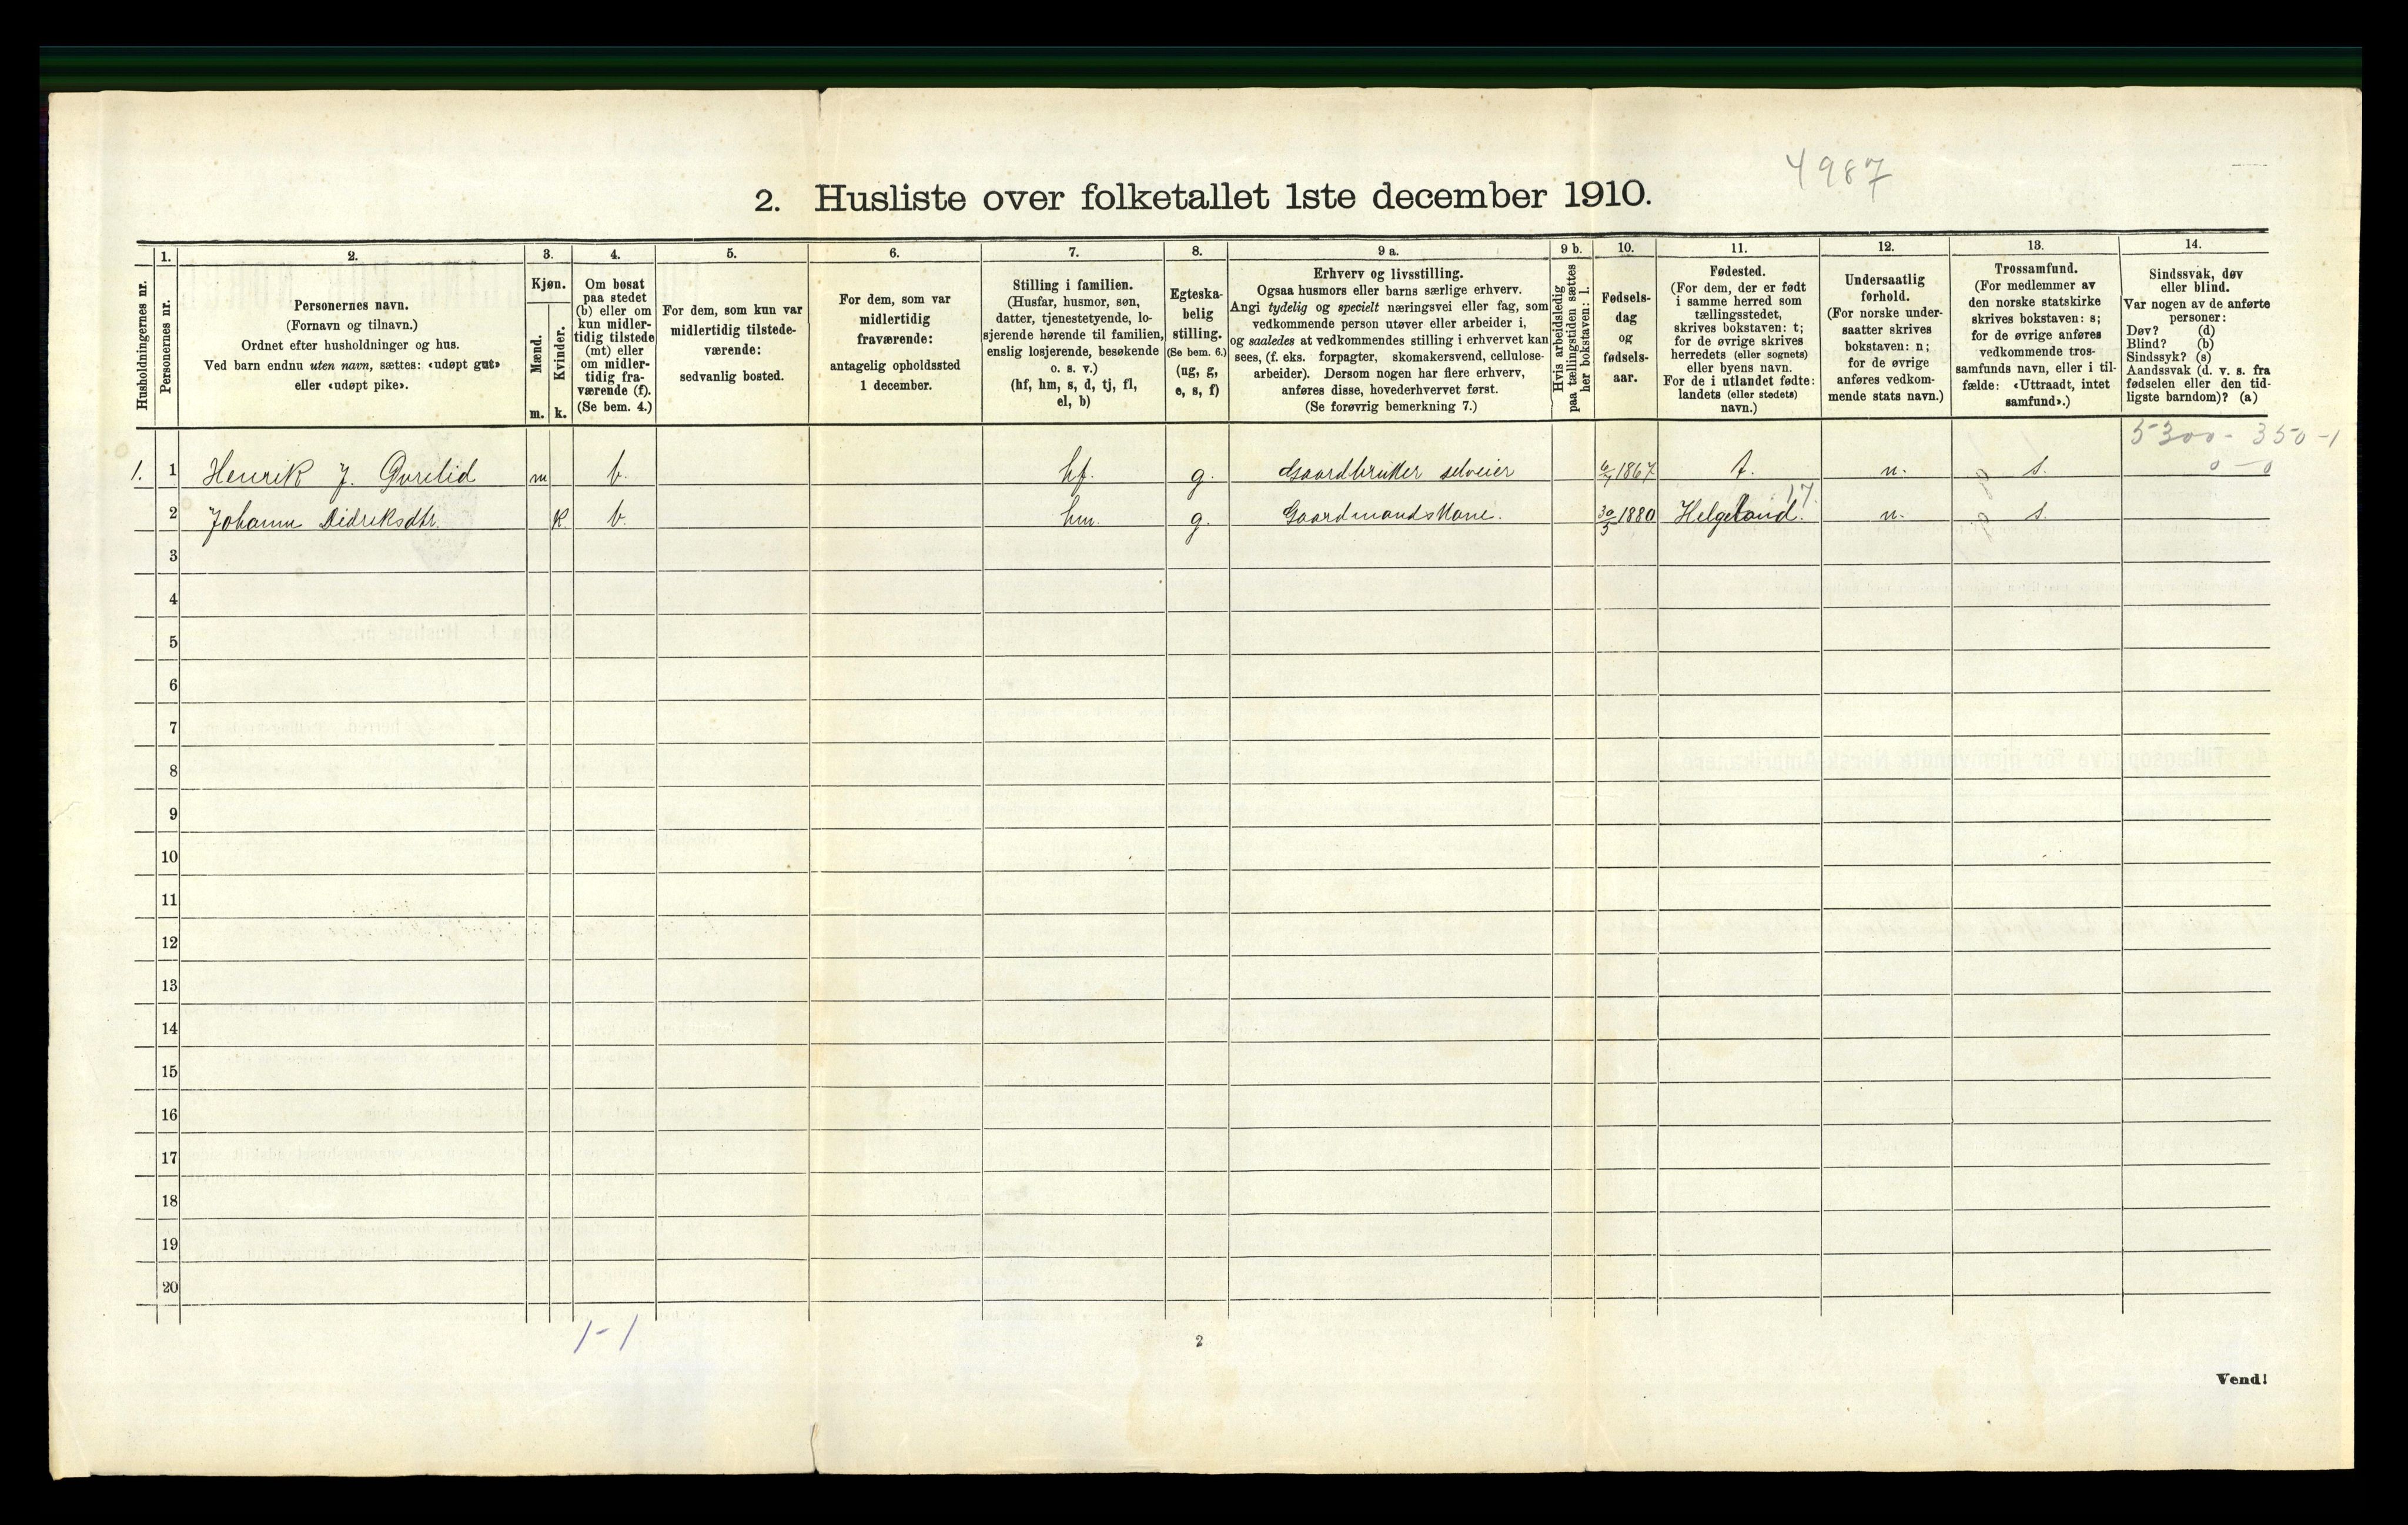 4987
2. Husliste over folketallet 1ste december 1910.
Husholdningernes nr.
1.
Personernes nr.
2.
Personernes navn.
(Fornavn og tilnavn.)
Ordnet efter husholdninger og hus.
Ved barn endnu uten navn, sættes: «udøpt gut»
eller «udøpt pike».
3.
Kjøn.
Mænd.
Kvinder.
m.
k.
4.
Om bosat
paa stedet
(b) eller om
kun midler-
tidig tilstede
(mt) eller
om midler-
tidig fra-
værende (f).
(Se bem. 4.)
5.
For dem, som kun var
midlertidig tilstede-
værende:
sedvanlig bosted.
6.
For dem, som var
midlertidig
fraværende:
antagelig opholdssted
1 december.
7.
Stilling i familien.
(Husfar, husmor, søn,
datter, tjenestetyende, lo-
sjerende hørende til familien,
enslig losjerende, besøkende
o. s. v.)
(hf, hm, s, d, tj, fl,
el, b)
8.
Egteska-
belig
stilling.
(Se bem. 6.)
(ug, g,
e, s, f)
9 a.
Erhverv og livsstilling.
Ogsaa husmors eller barns særlige erhverv.
Angi tydelig og specielt næringsvei eller fag, som
vedkommende person utøver eller arbeider i,
og saaledes at vedkommendes stilling i erhvervet kan
sees, (f. eks. forpagter, skomakersvend, cellulose-
arbeider). Dersom nogen har flere erhverv,
anføres disse, hovederhvervet først.
(Se forøvrig bemerkning 7.)
9 b.
Hvis arbeidsledig
paa tællingstiden sættes
her bokstaven: l.
10.
Fødsels-
dag
og
fødsels-
aar.
11.
Fødested.
(For dem, der er født
i samme herred som
tællingsstedet,
skrives bokstaven: t;
for de øvrige skrives
herredets (eller sognets)
eller byens navn.
For de i utlandet fødte:
landets (eller stedets)
navn.)
12.
Undersaatlig
forhold.
(For norske under-
saatter skrives
bokstaven: n;
for de øvrige
anføres vedkom-
mende stats navn.)
13.
Trossamfund.
(For medlemmer av
den norske statskirke
skrives bokstaven: s;
for de øvrige anføres
vedkommende tros-
samfunds navn, eller i til-
fælde: «Uttraadt, intet
samfund».)
14.
Sindssvak, døv
eller blind.
Var nogen av de anførte
personer:
Døv? (d)
Blind? (b)
Sindssyk? (s)
Aandssvak (d. v. s. fra
fødselen eller den tid-
ligste barndom)? (a)
5300 - 350 - 1
0 - 0
1. 1 Henrik J. m b. hf. g. Gaardbruker selveier 1867 t. n. s.
17.
2 Johanne Didriksdtr. k b. hm. g. Gaardmandskone. 30/5 1880 Helgeland. n. s.
3
4
5
6
7
8
9
10
11
12
13
14
15
16
17
18
19
20
1-1
2
Vend!